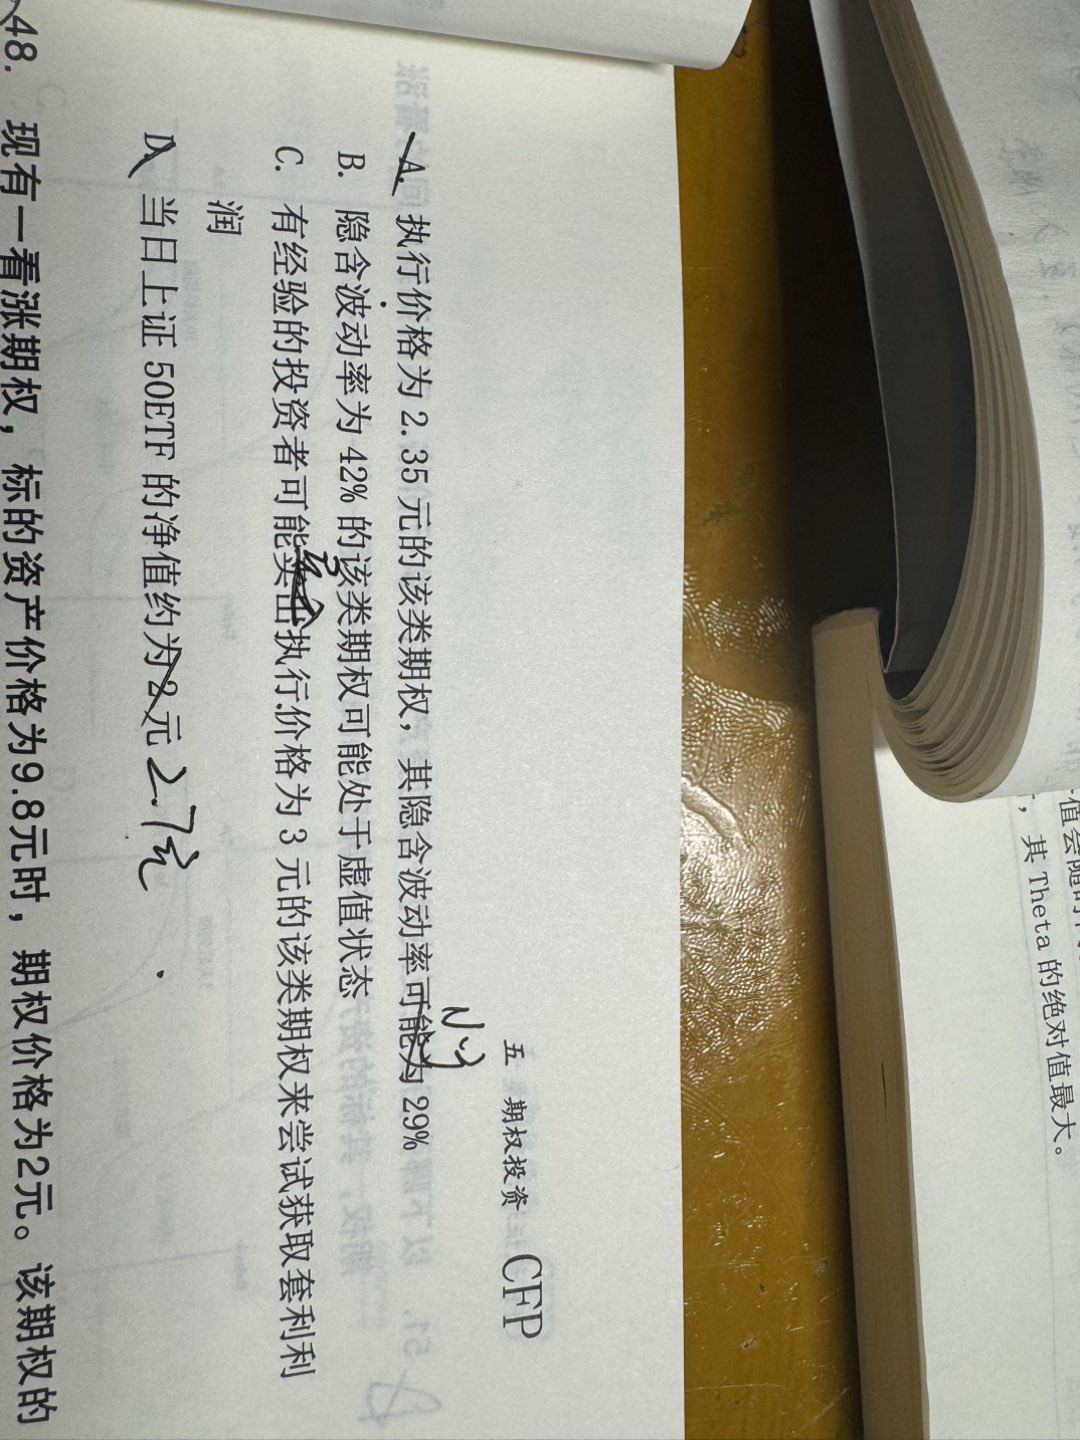 五 期权投资 CFP
A. 执行价格为 2.35 元的该类期权，其隐含波动率可能为 29%
B. 隐含波动率为 42% 的该类期权可能处于虚值状态
C. 有经验的投资者可能卖出执行价格为 3 元的该类期权来尝试获取套利利
润
D. 当日上证 50ETF 的净值约为 2 元 2.7元
48. 现有一看涨期权，标的资产价格为9.8元时，期权价格为2元。该期权的
，其 Theta 的绝对值最大。